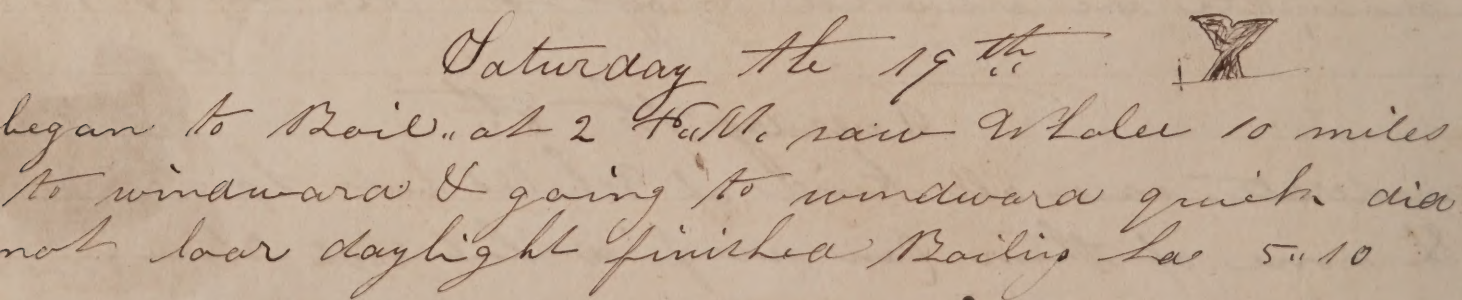 Saturday the 19th
began to Boil.. at 2 P..M. saw Whales 10 miles
to windward & going to windward quick did
not loar daylight finished Boiling La 5..10